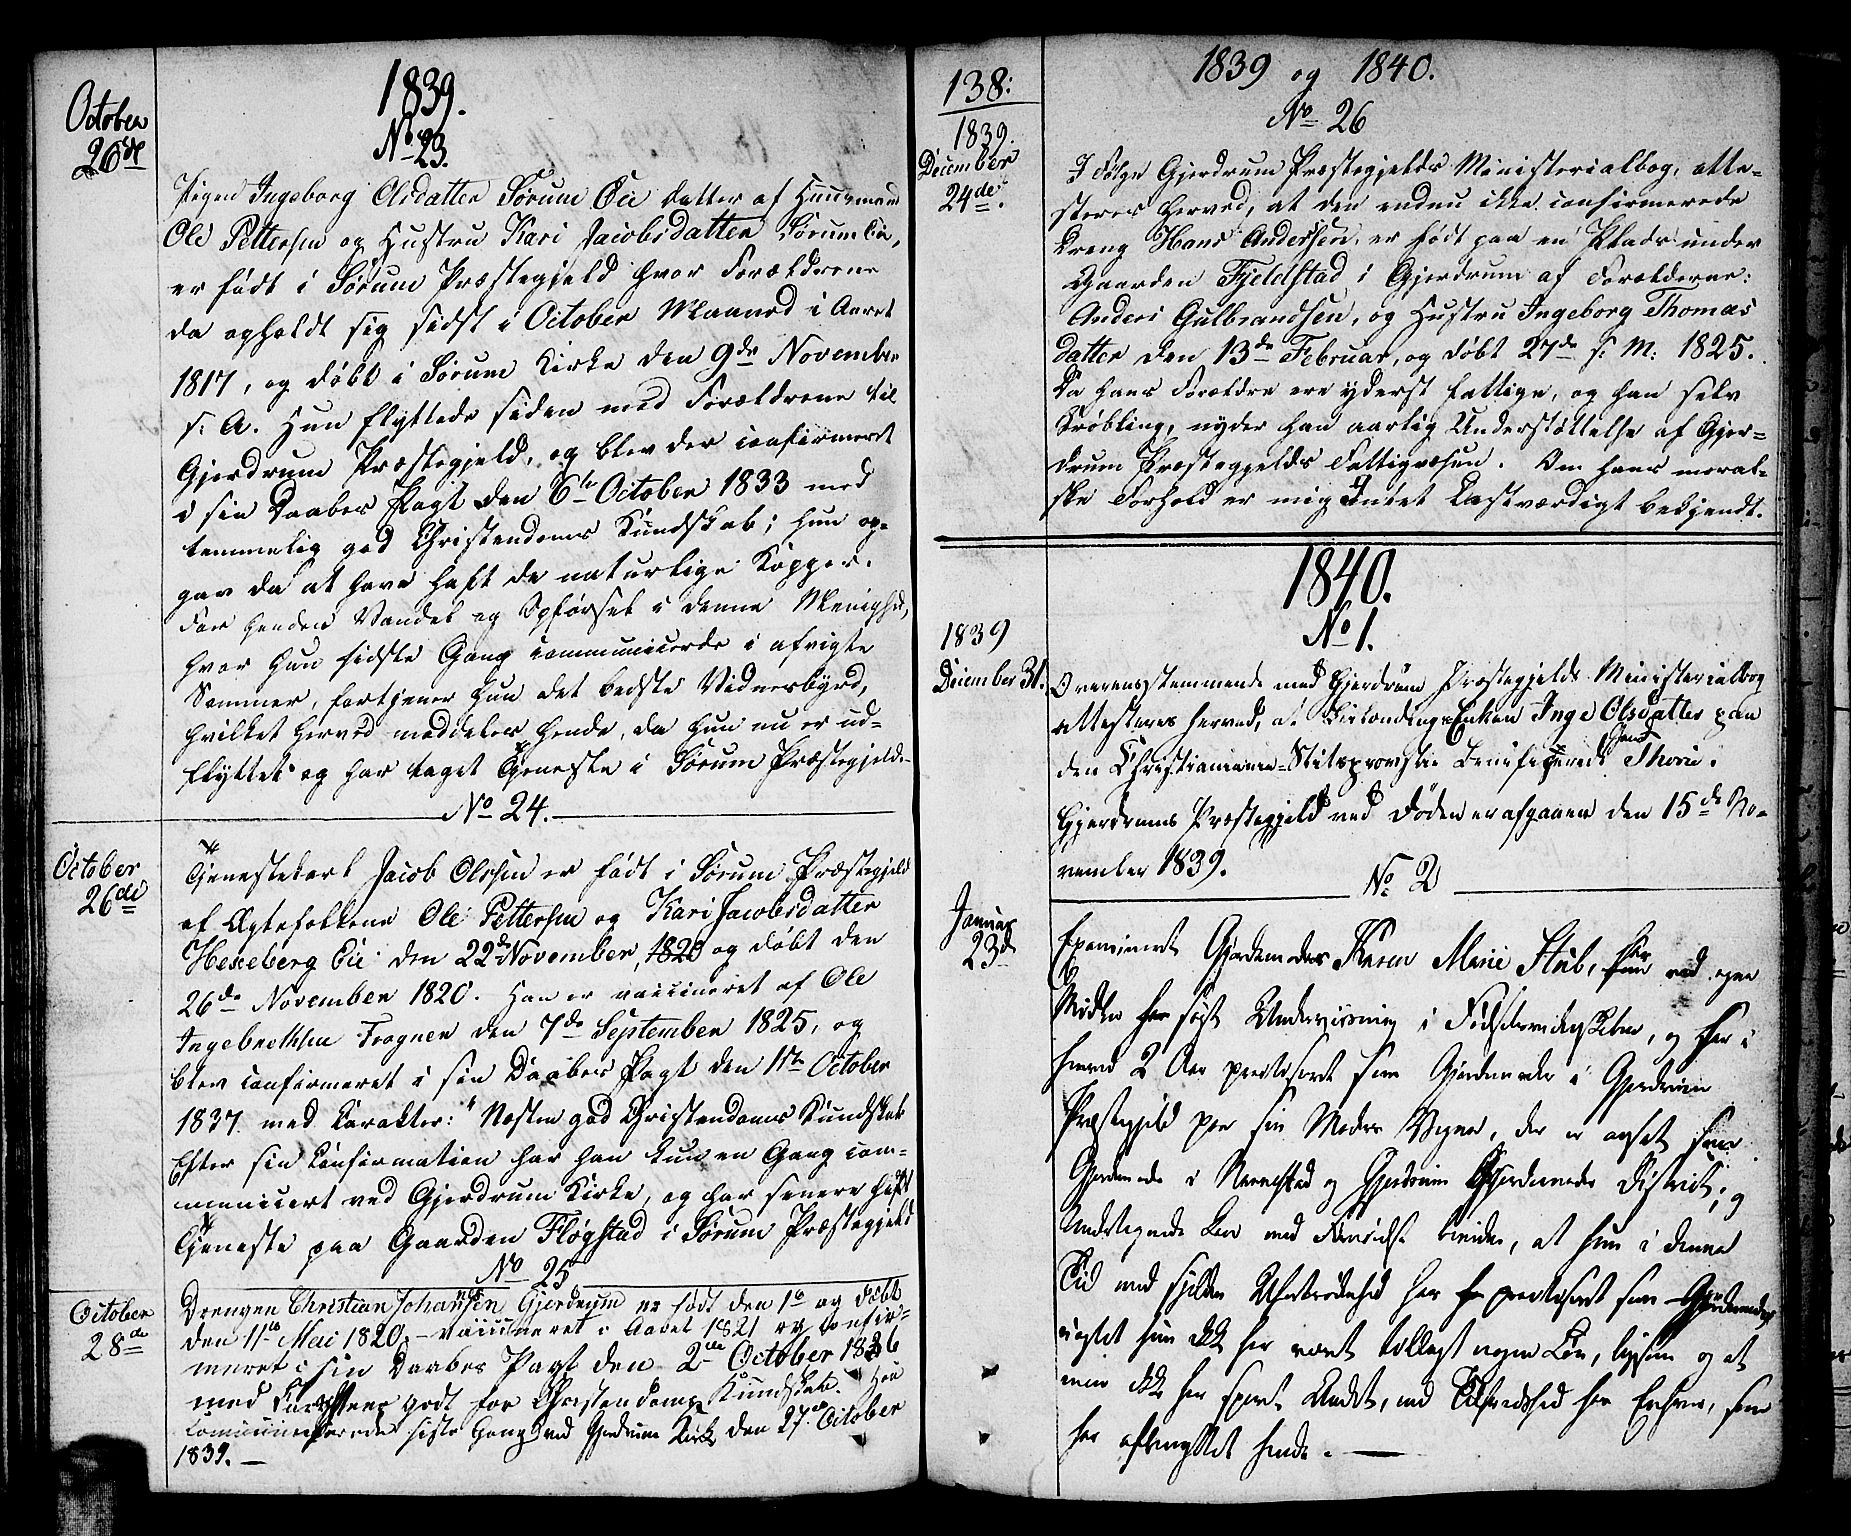 1839.
October
26de
No 23.
Pigen Ingeborg Olsdatter Sørum Eie Datter af Huusmand
Ole Pettersen og Hustru Kari Jacobsdatter Sørum Eie,
er født i Sørum Præstegjeld hvor Forældrene
da opholdt sig sidst i October Maaned i Aaret
1817, og døbt i Sørum Kirke den 9de November
s. A. Hun flyttede siden med Forældrene til
Gjerdrum Præstegjeld, og blev der confirmeret
i sin Daabes Pagt den 6te October 1833 med
temmelig god Christendoms Kundskab; hun op-
gav da at have haft de naturlige Kopper.
For hendes Vandel og Opførsel i denne Menighed,
hvor hun sidste Gang communicerede i afvigte
Sommer, fortjener hun det bedste Vidnesbyrd,
hvilket herved meddeles hende, da hun nu er ud-
flyttet og har taget Tjeneste i Sørum Præstegjeld.
No 24.
October
26de
Tjenestekarl Jacob Olssen er født i Sørum Præstegjeld
af Ægtefolkene Ole Pettersen og Kari Jacobsdatter
Hexeberg Eie den 22de November, 1820 og døbt den
26de November 1820. Han er vaccineret af Ole
Ingebrethsen Frogner den 7de September 1825, og
blev confirmeret i sin Daabes Pagt den 1te October
1837 med Karakter: "Næsten god Christendoms Kundskab
Efter sin Confirmation har han kun en Gang com-
municert ved Gjerdrum Kirke, og har senere haft
Tjeneste paa Gaarden Fløgstad i Sørum Præstegjeld
No 25
October
28de
Drengen Christian Johansen Gjerdrum er født den 1te og døbt
den 11te Mai 1820, - vaccineret i Aaret 1821 og confir-
meret i sin Daabes Pagt den 2den October 1836
med Karakteer godt for Christendoms Kundskab. Han
communicerede sidste Gang ved Gjerdrum Kirke den 27de October
1839. —
138:
1839 og 1840.
1839.
December
24de.
No 26
I Følge Gjerdrum Præstegjelds Ministerialbog, atte-
steres herved, at den endnu ikke confirmerede
Dreng Hans Anderssen, er født paa en Plads under
Gaarden Fjeldstad i Gjerdrum af Forælderne:
Anders Gulbrandsen, og Hustru Ingeborg Thomas
datter den 13de Februar, og døbt 27de s. M. 1825.
Da hans Forældre ere yderst fattige, og han selv
Krøbling, nyder han aarlig Understøttelse af Gjer-
drum Præstegjelds Fattigvæsen. Om hans moral-
ske Forhold er mig Intet Lastværdigt bekjendt.
1840.
No 1.
1839
December 31.
Overensstemmende med Gjerdrum Præstegjelds Ministerialbog
attesteres herved, at Enken Inge Olsdatter paa
den Christiania Stiftsprovstie Beneficerede Jord
Gjerdrums Præstegjeld ved Døden er afgaaen den 15de No-
vember 1839.
No 2
Januar
23de
Examineret Gjordemoder Karen Marie Stub, har ved egne
Midler søgt Underviisning i Fødselsvidenskaben, og har i
henved 2 Aar practiseret som Gjordemoder i Gjerdrum
Præstegjeld paa sin Moders Vegne, der er ansat som
Gjordemoder i Nannestad og Gjerdrum Gjordemoder District; og
Undertegnede kan med Sandhed bevidne, at hun i denne
Tid med sjelden Ufortrødenhed har practiseret som Gjordemoder,
uagtet hun ikke har været tillagt nogen Løn, ligesom og at
man ikke har sport Andet, end Tilfredshed hos Enhver, som
har afbenyttet hende. —